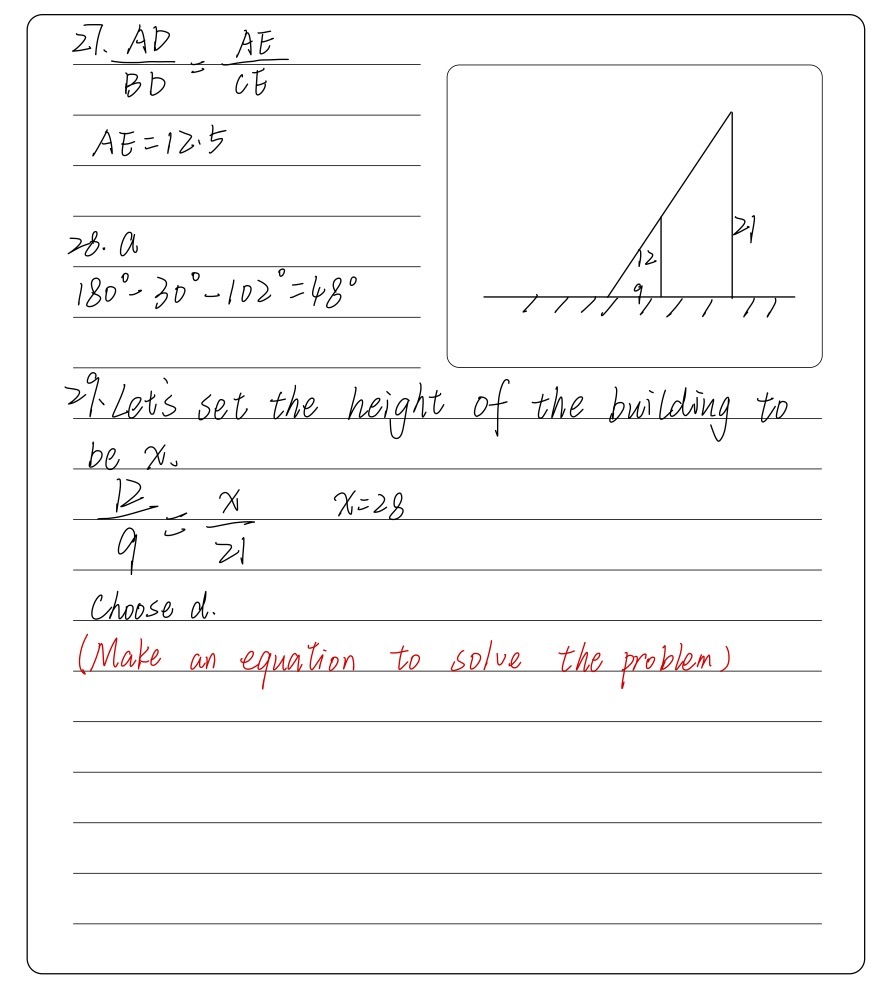 27. AD/BD = AE/CE
AE=12.5
28. a
180°-30°-102°=48°
12
9
21
29. Let's set the height of the building to
be x.
12/9 = x/21 x=28
Choose d.
(Make an equation to solve the problem)